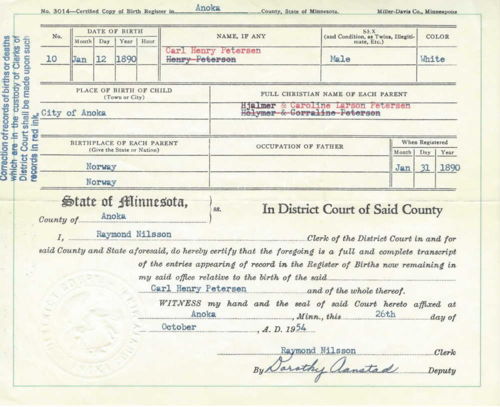 No. 3014—Certified Copy of Birth Register in Anoka County, State of Minnesota. Miller-Davis Co., Minneapolis
No. DATE OF BIRTH Month Day Year Hour NAME, IF ANY SEX (and Condition, as Twins, Illegitimate, Etc.) COLOR
Carl Henry Petersen
10 Jan 12 1890 Henry Peterson Male White
PLACE OF BIRTH OF CHILD FULL CHRISTIAN NAME OF EACH PARENT
(Town or City)
Hjalmer & Caroline Larson Petersen
City of Anoka Holymer & Corraline Peterson
BIRTHPLACE OF EACH PARENT OCCUPATION OF FATHER When Registered
(Give the State or Nation) Month Day Year
Norway Jan 31 1890
Norway
Correction of records of births or deaths
which are in the custody of Clerks of
District Court shall be made upon such
records in red ink.
State of Minnesota,
ss. In District Court of Said County
County of Anoka
I, Raymond Nilsson Clerk of the District Court in and for
said County and State aforesaid, do hereby certify that the foregoing is a full and complete transcript
of the entries appearing of record in the Register of Births now remaining in
my said office relative to the birth of the said
Carl Henry Petersen and of the whole thereof.
WITNESS my hand and the seal of said Court hereto affixed at
Anoka, Minn., this 26th day of
October, A. D. 1954
Raymond Nilsson Clerk
By Dorothy Aanstad Deputy